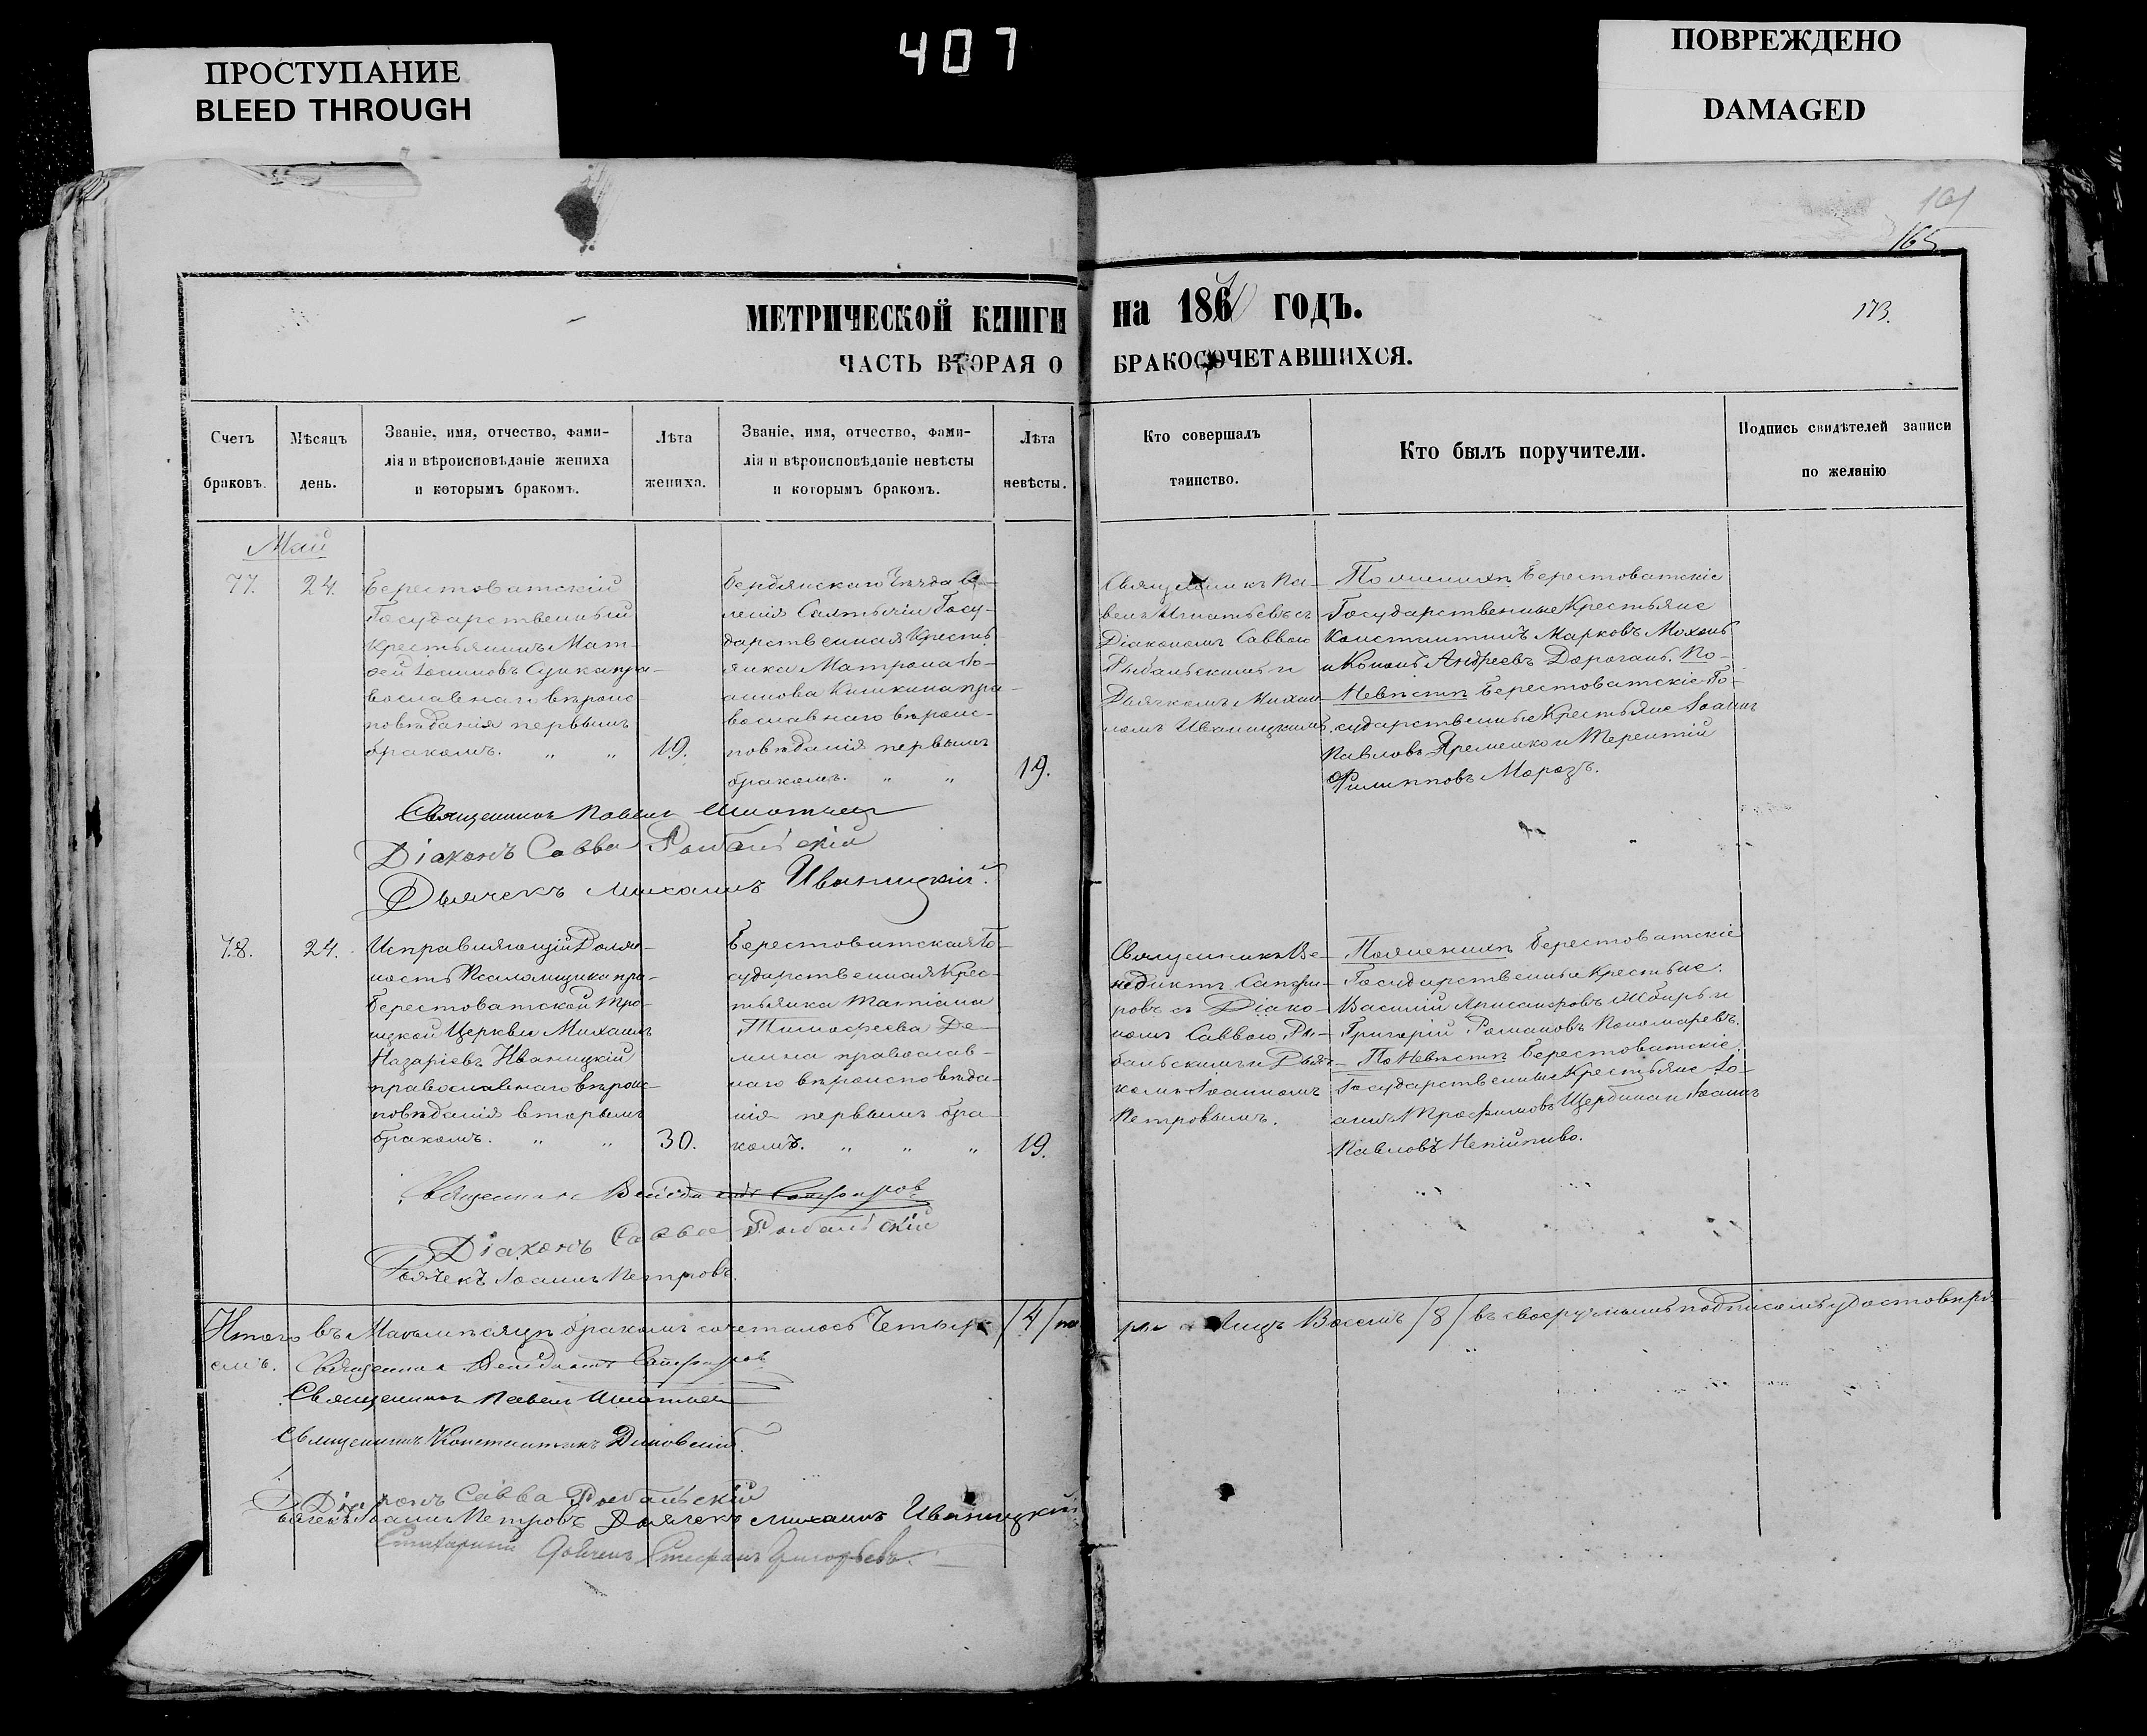 407
ПРОСТУПАНИЕ
BLEED THROUGH
ПОВРЕЖДЕНО
DAMAGED
165
173.
МЕТРИЧЕСКОЙ КНИГИ на 1870 ГОДЪ.
ЧАСТЬ ВТОРАЯ О БРАКОСОЧЕТАВШИХСЯ.
Счетъ
браковъ.
Мѣсяцъ
день.
Званіе, имя, отчество, фами-
лія и вѣроисповѣданіе жениха
и которымъ бракомъ.
Лѣта
жениха.
Званіе, имя, отчество, фами-
лія и вѣроисповѣданіе невѣсты
и которымъ бракомъ.
Лѣта
невѣсты.
Кто совершалъ
таинство.
Кто былъ поручители.
Подпись свидѣтелей записи
по желанію
Май
77.
24.
Берестоватскій
Государственный
Крестьянинъ Мат-
фей Іоанновъ пра-
вославнаго вѣроис-
повѣданія первымъ
бракомъ. " "
19.
Бердянскаго Уѣзда Се-
ленія Салтычіи Госу-
дарственная Кресть
янка Матрона Іо-
аннова Кишкина пра-
вославнаго вѣроис-
повѣданія первымъ
бракомъ. " "
19.
Священникъ Па-
велъ Игнатьевъ съ
Діакономъ Саввою
Рыбальскимъ и
Дьячкомъ Михаи-
ломъ Иваницкимъ.
По женихѣ Берестоватскіе
Государственные Крестьяне
Константинъ Марковъ Мохонь
и Кононъ Андреевъ Дороганъ. По
Невѣстѣ Берестоватскіе Го-
сударственные Крестьяне Іоаннъ
Павловъ Яременко и Терентій
Филипповъ Морозъ.
Священникъ Павелъ Игнатьевъ
Діаконъ Савва Рыбальскій
Дьячекъ Михаилъ Иваницкій.
78.
24.
Исправляющій Долж-
ность Псаломщика при
Берестоватской Тро-
ицкой Церкви Михаилъ
Назаріевъ Иваницкій
православнаго вѣроис-
повѣданія вторымъ
бракомъ. " "
30.
Берестоватская Го-
сударственная Крес-
тьянка Татіана
Тимофеева Де-
мина православ-
наго вѣроисповѣда-
нія первымъ бра-
комъ. " " "
19.
Священникъ Ве-
недиктъ Сапфи-
ровъ съ Діако-
номъ Саввою Ры-
бальскимъ и Дьяч-
комъ Іоанномъ
Петровымъ.
По женихѣ Берестоватскіе
Государственные Крестьяне:
Василій Жбырь и
Григорій Романовъ Пономаревъ.
По Невѣстѣ Берестоватскіе
Государственные Крестьяне Іо-
аннъ Трофимовъ Щербина и Іоаннъ
Павловъ Непійпиво.
Священникъ Венедиктъ Сапфировъ
Діаконъ Савва Рыбальскій
Дьячекъ Іоаннъ Петровъ.
Итого въ Маѣ мѣсяцѣ бракомъ сочеталось Четыре /4/ па ры а Лицъ Восемъ /8/ въ своеручнымъ подписомъ удостовѣря
емъ. Священникъ Венедиктъ Сапфировъ
Священникъ Павелъ Игнатьевъ
Священникъ Константинъ
Діаконъ Савва Рыбальскій
Дьячекъ Іоаннъ Петровъ Дьячекъ Михаилъ Иваницкій
Дьячекъ Стефанъ Григорьевъ.